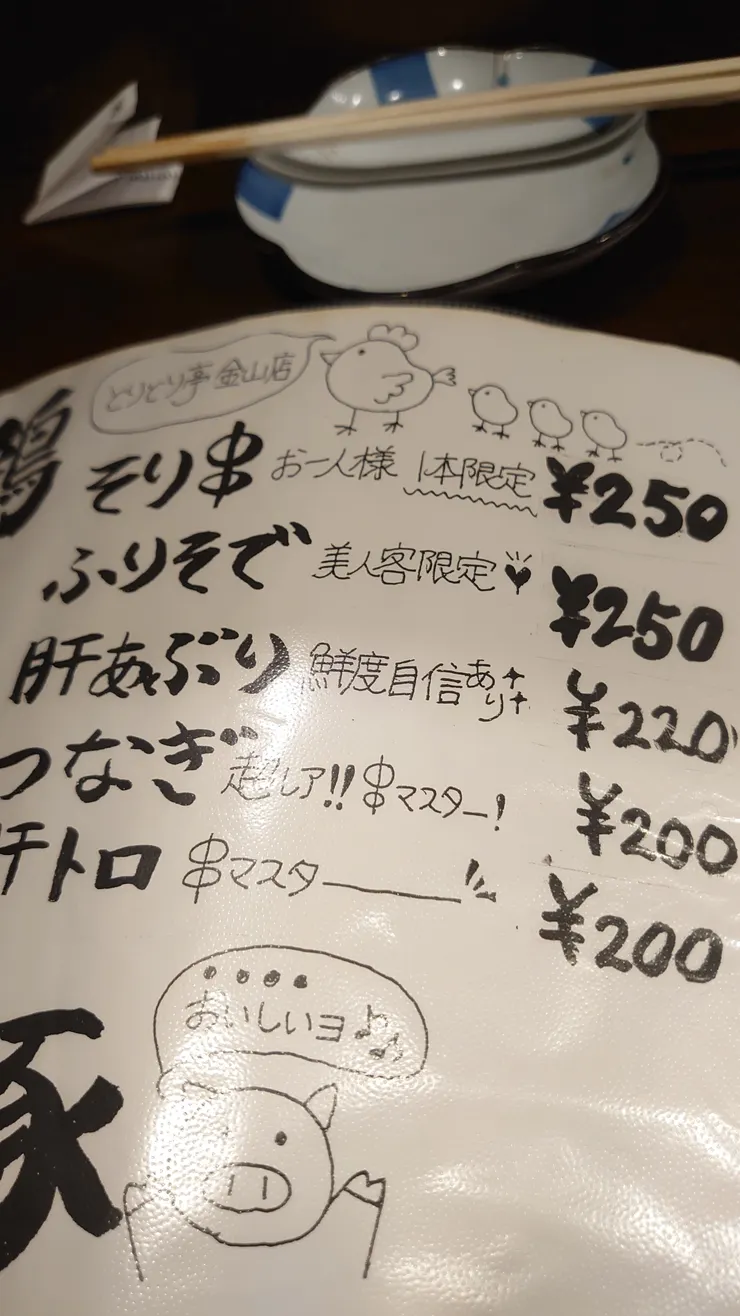 とりどり亭 金山店
そり串 お一人様 1本限定 ¥250
ふりそで 美人客限定 ¥250
肝あぶり 鮮度自信あり ¥220
つなぎ 超レア!! 串マスター! ¥200
トロ 串マスター ¥200
おいしいヨ♪♫
豚